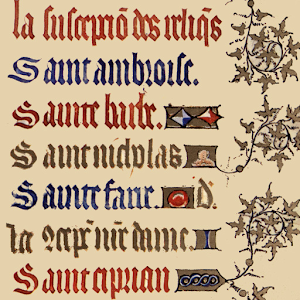 la suscepciõ des reliq̃s
Saint ambroise.
Sainte barbe.
Saint nicholas
Sainte fare. D.
La ꝯcep̃ nr̃e dame.
Saint ciprian